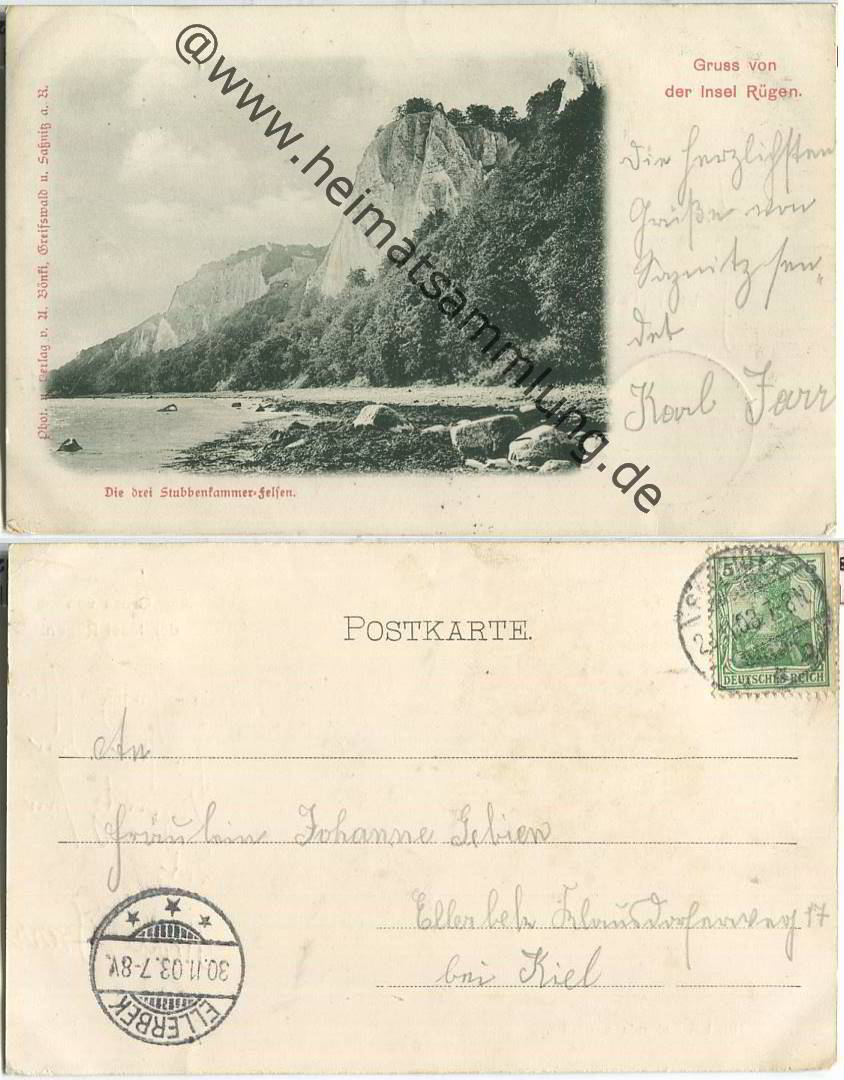 Gruss von
der Insel Rügen.
Die herzlichsten
Grüße von
Saznitz sen-
det
Karl Farr
Phot. u. Verlag v. A. Bönki, Greifswald u. Saßnitz a. R.
Die drei Stubbenkammer-Felsen.
@www.heimatsammlung.de
POSTKARTE.
5 5
DEUTSCHES REICH
03. 7-8N.
An
Fräulein Johanne Gebien
Ellerbek Klausdorferweg 17
bei Kiel
30.11.03.7-8V.
ELLERBEK